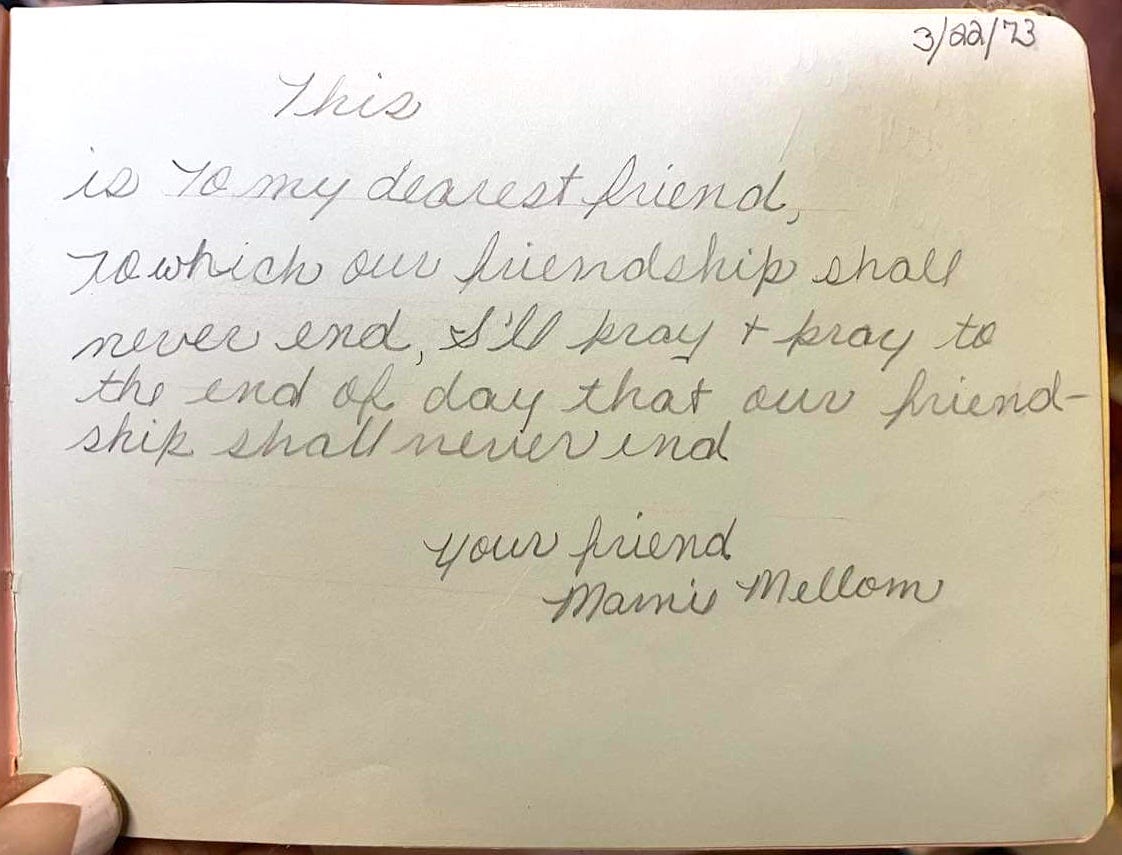 3/22/73
This
is To my dearest friend,
To which our friendship shall
never end, I'll pray + pray to
the end of day that our friend-
ship shall never end
Your friend
Mamie Mellom